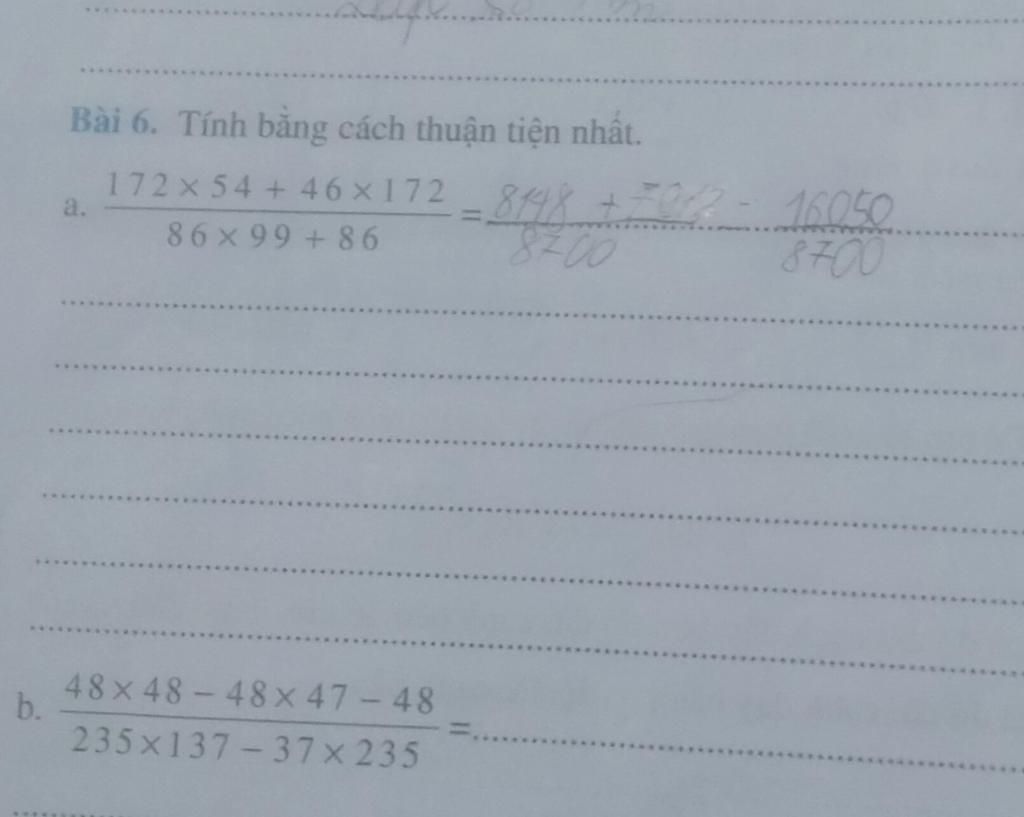 Bài 6. Tính bằng cách thuận tiện nhất.
a. 172 × 54 + 46 × 172 = 8148 + - 16050
86 × 99 + 86 8700 8700
b. 48 × 48 – 48 × 47 – 48 =
235 × 137 – 37 × 235